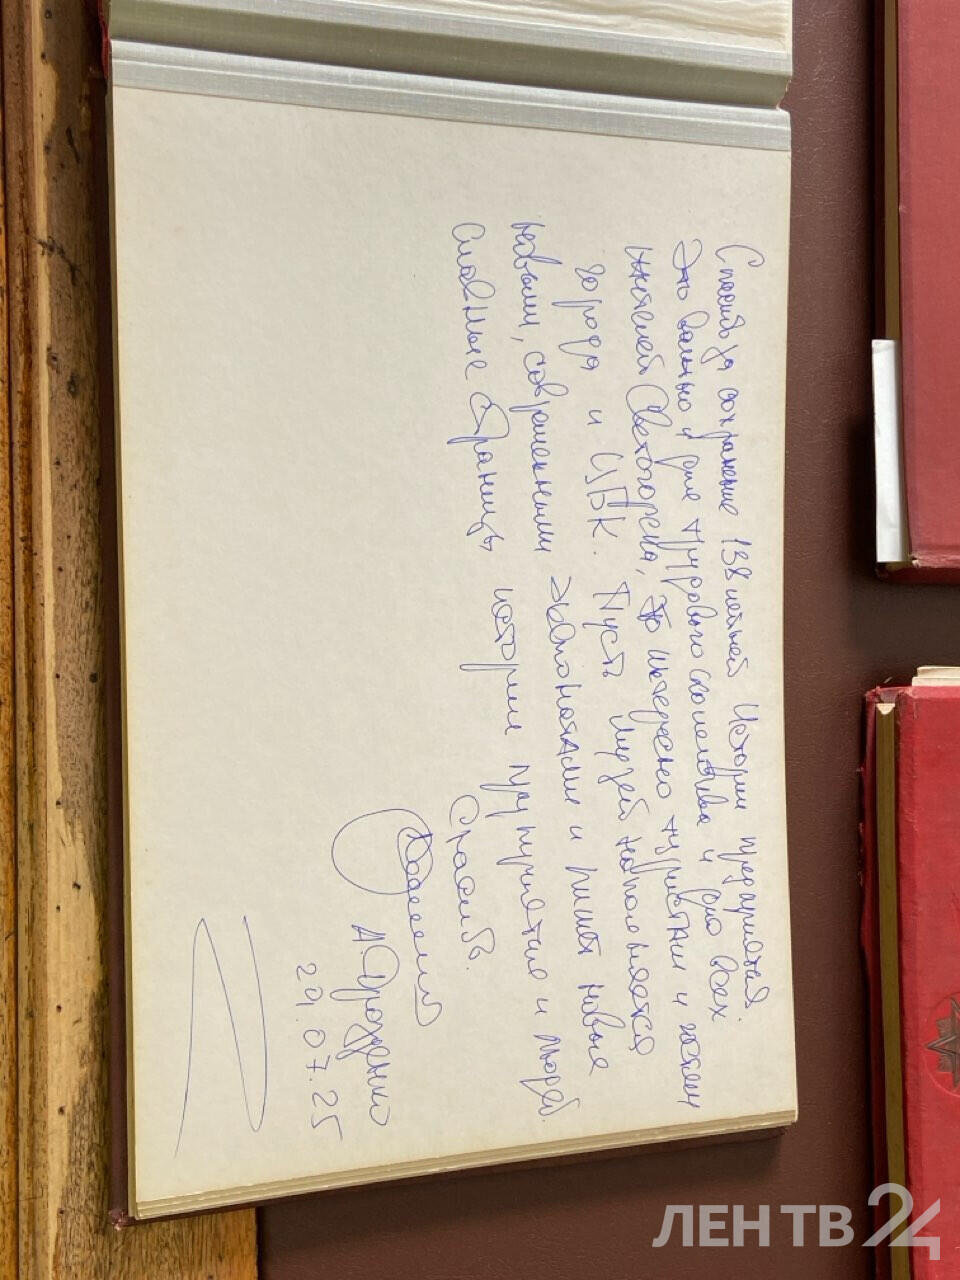 Спасибо за сохранение 138 летней истории предприятия.
Это важно и для трудового коллектива и для всех
жителей Светогорска, это интересно туристам и гостям
города и ЦБК. Пусть музей наполняется
новыми, современными экспонатами и пишет новые
славные страницы истории предприятия и людей.
Спасибо.
А. Дрозденко
29.07.25
ЛЕН ТВ 24